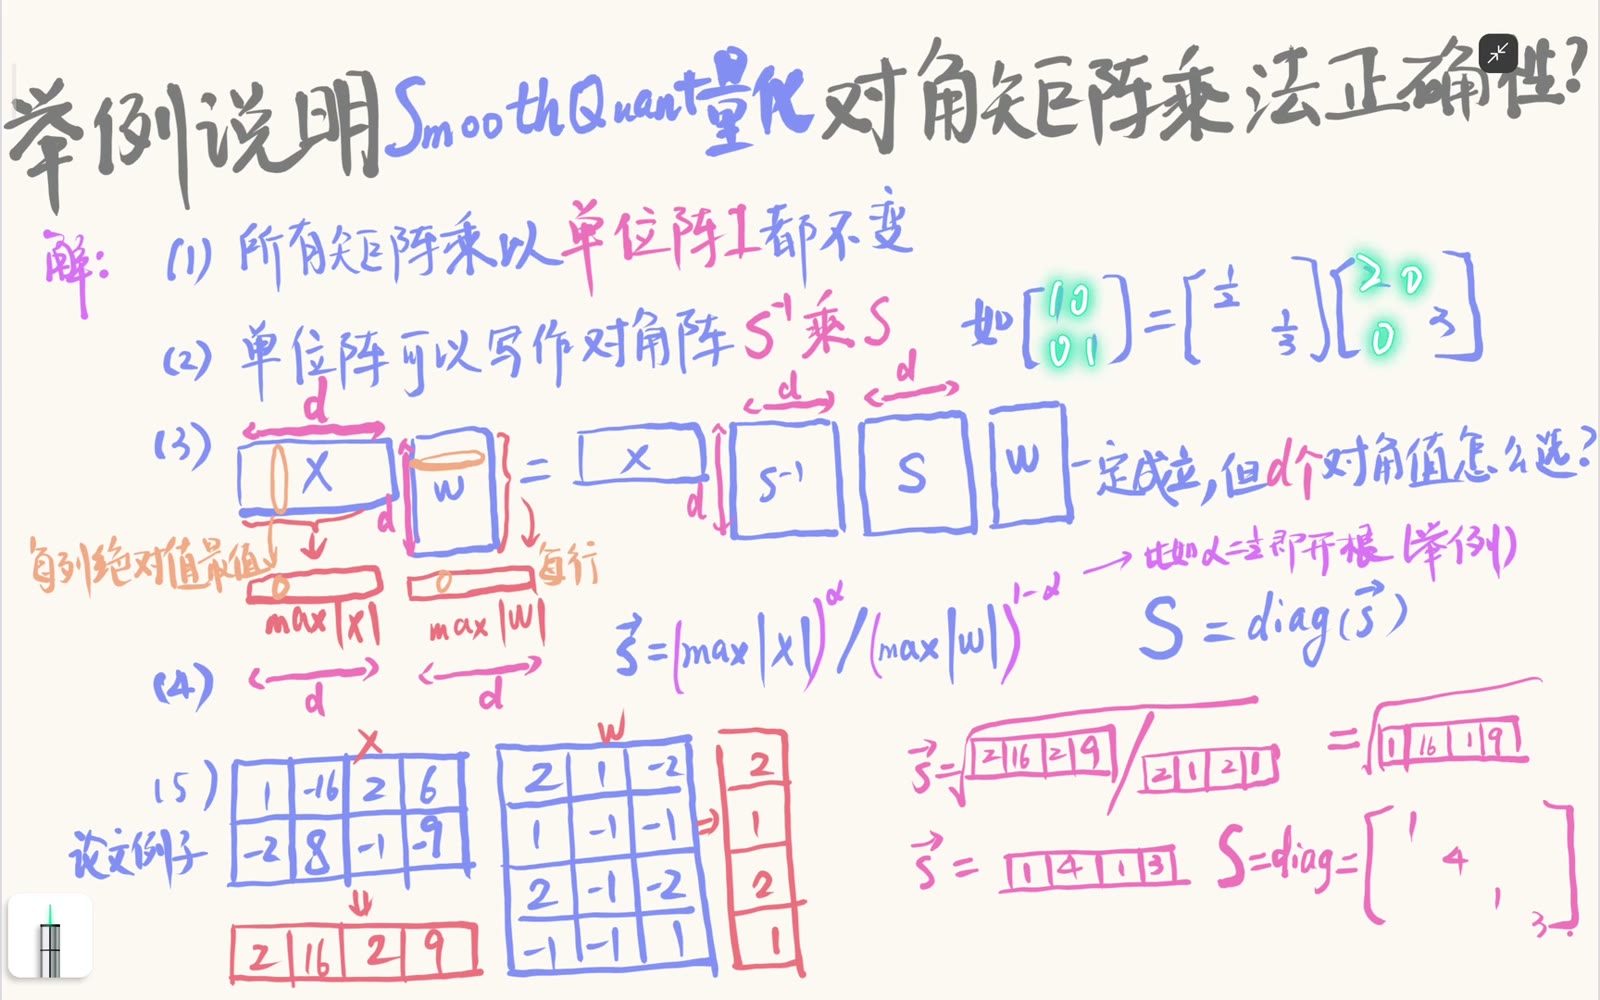 举例说明SmoothQuant量化对角矩阵乘法正确性?
解: (1) 所有矩阵乘以单位阵I都不变
(2) 单位阵可以写作对角阵 S⁻¹乘S 如[1 0 0 1]=[1/2 1/3][2 0 0 3]
d d d
(3) X d W = X d S⁻¹ S W 一定成立,但d个对角值怎么选?
每列绝对值最值 每行
max|X| max|W|
→比如α=½即开根(举例)
(4) s⃗=(max|X|)^α/(max|W|)^1-α S=diag(s⃗)
d d
(5) 论文例子
X
1 -16 2 6
-2 8 -1 -9
⇓
2 16 2 9
W
2 1 -2 2
1 -1 -1 ⇒ 1
2 -1 -2 2
-1 -1 1 1
s⃗=√2 16 2 9 / 2 1 2 1 = √1 16 1 9
s⃗= 1 4 1 3 S=diag=[1 4 1 3]